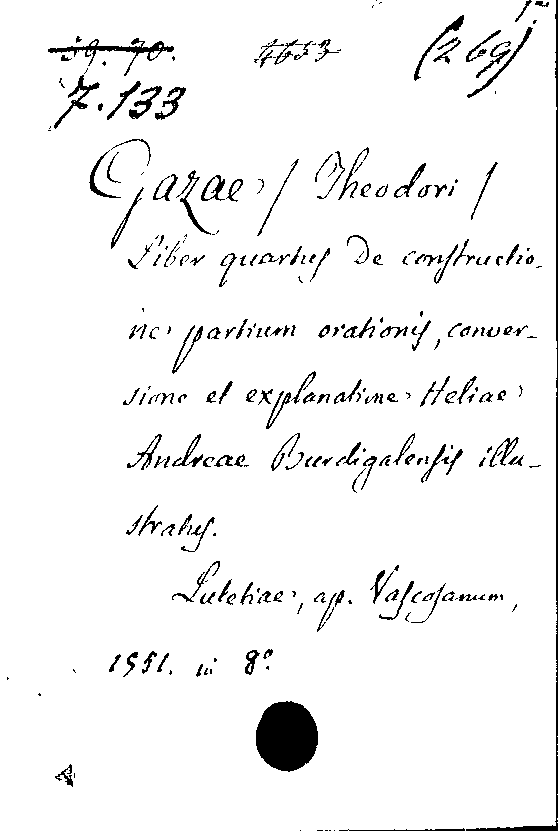 59. 70. 4653 (269)
7.133
Gazae / Theodori /
Liber quartus de constructio-
ne partium orationis, conver-
sione et explanatione Heliae
Andreae Burdigalensis illu-
stratus.
Lutetiae, ap. Vascosanum,
1551. in 8º.